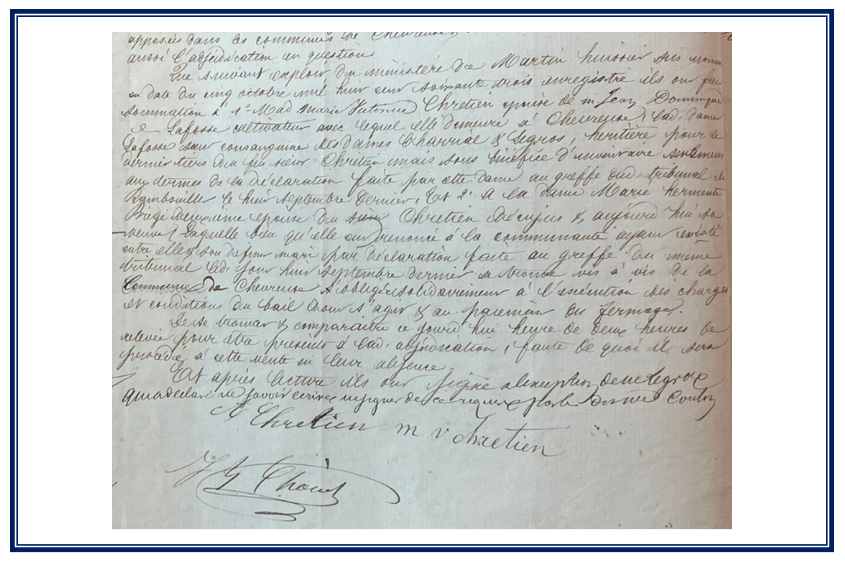 apposées dans les communes de Chevreuse
aussi l'adjudication en question
Que suivant exploit du ministère de Martin huissier sus nommé
en date du cinq octobre mil huit cent soixante trois enregistré ils ont fait
sommation à 1° Mad Marie Victorine Chretien épouse de m. Jean Dominique
Lafosse cultivateur avec lequel elle demeure à Chevreuse, lad. dame
Lafosse sœur consanguine des dames Charrial & Legros, heritière pour le
dernier tiers du feu sieur Chretien mais sous bénéfice d'inventaire seulement
aux termes de la déclaration faite par cette dame au greffe du tribunal de
Rambouillet le huit septembre dernier; Et 2° à la dame Marie hermente
Piégé deuxième épouse du sieur Chretien de cujus & aujourd'hui sa
veuve, laquelle bien qu'elle ait renoncé à la communauté ayant existé
entre elle & son défunt mari par déclaration faite au greffe du même
tribunal led. jour huit septembre dernier se trouve vis à vis de la
Commune de Chevreuse s'obligée solidairement à l'exécution des charges
et conditions du bail dont s'agit & au paiement du fermage.
De se trouver & comparaitre ce jourd'hui heure de deux heures de
relevée pour être présents à lad. adjudication, faute de quoi il sera
procédé à cette vente en leur absence
Et après lecture ils ont signé à l'exception de me Legros
qui a déclaré ne savoir écrire ni signer de ce requise par le
Chretien m v chretien